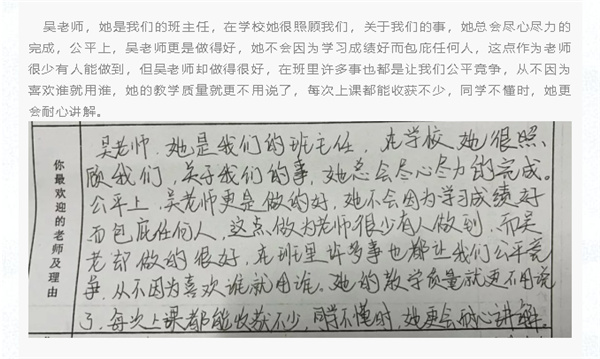 吴老师，她是我们的班主任，在学校她很照顾我们，关于我们的事，她总会尽心尽力的
完成，公平上，吴老师更是做得好，她不会因为学习成绩好而包庇任何人，这点作为老师
很少有人能做到，但吴老师却做得很好，在班里许多事也都是让我们公平竞争，从不因为
喜欢谁就用谁，她的教学质量就更不用说了，每次上课都能收获不少，同学不懂时，她更
会耐心讲解。
你最欢迎的老师及理由
吴老师，她是我们的班主任，在学校她很照
顾我们，关于我们的事，她总会尽心尽力的完成。
公平上，吴老师更是做的好，她不会因为学习成绩好
而包庇任何人，这点做为老师很少有人做到，而吴
老却做的很好，在班里许多事也都让我们公平竞
争，从不因为喜欢谁就用谁。她的教学质量就更不用说
了，每次上课都能收获不少，同学不懂时，她更会耐心讲解。